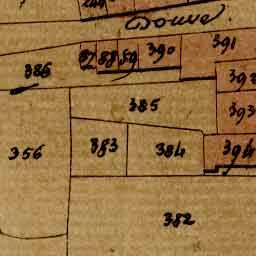 Douve.
386 87 88 89 390 391
392
385
393
356 383 384 394
382